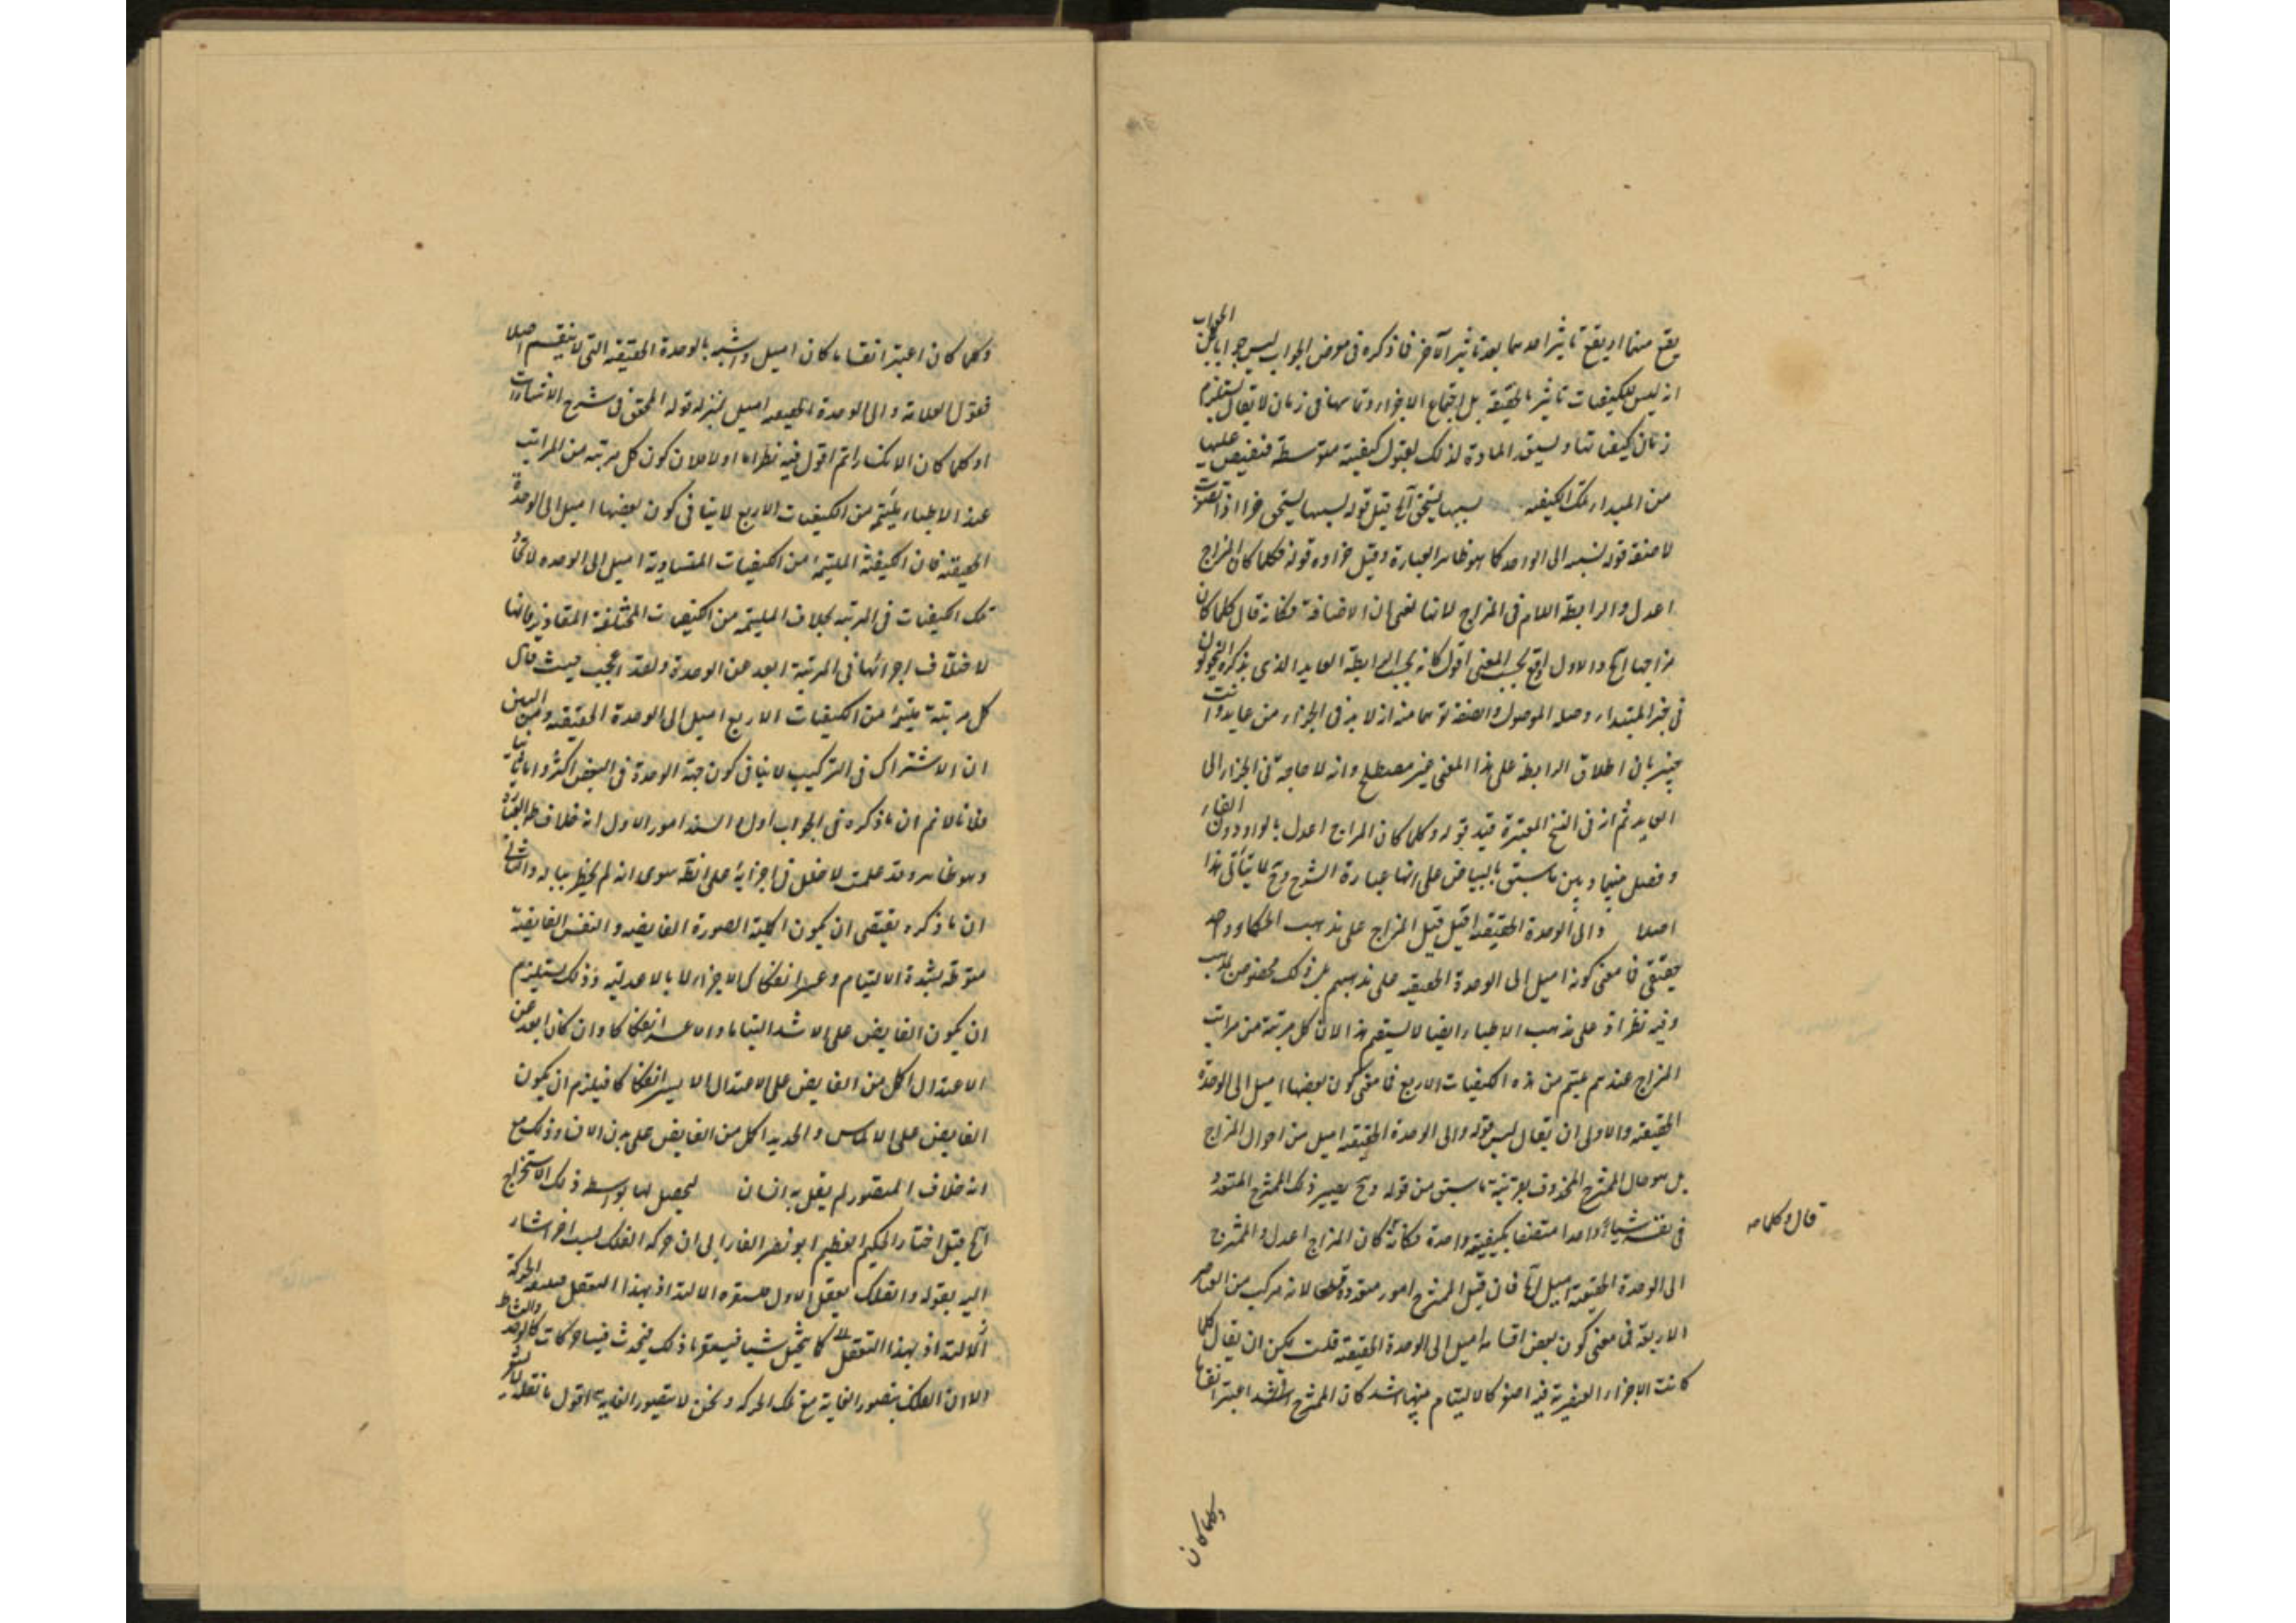 يقع منها او يقع تاثير احدهما بعد تاثير الآخر فما ذكره فى معرض الجواب ليس جوابا بل الجواب
انه ليس للكيفيات تاثير بالحقيقة بل اجتماع الاجزاء وتماسها فى زمان لا يقال يستلزم
زمان كيفياتها ويستعد المادة لذلك لقبول كيفية متوسطة فتفيض عليها
من المبدا تلك الكيفية بسببها يستحق الخ قيل قوله بسببها يستحق جزا اذا
لا صفة قوله نسبة الى الواحد كما هو ظاهر العبارة وقيل جزاوه قوله فكلما كان المزاج
اعدل والرابطة اللام فى المزاج لانها تغنى عن الاضافة فكانه قال كلما كان
مزاجها الخ والاول اوقع بحسب المعنى اقول كانه بحسب الرابطة العايد الذى يذكره النحويون
فى خبر المبتدا وصلة الموصول والصفة توهما منه انه لا بد فى الجزاء من عايد وانت
خبير بان اطلاق الرابطة على هذا المعنى غير مصطلح وانه لا حاجة فى الجزاء الى
العايد ثم انه فى النسخ المعتبرة قيد بقوله وكلما كان المزاج اعدل بالواو دون الفاء
وفصل بينها وبين ما سبق بالبياض على انها عبارة الشرح وح لا يتأتى هذا
اصلا والى الوحدة الحقيقة اميل قيل المزاج على مذهب الحكما واحد
حقيقى فما معنى كونه اميل الى الوحدة الحقيقة على مذهبهم بل ذلك مخصوص بمذهب
وفيه نظر اذ على مذهب الاطباء ايضا لا يستقيم هذا لان كل مرتبة من مراتب
المزاج عندهم يلتئم من هذه الكيفيات الاربع فما معنى كون بعضها اميل الى الوحدة
الحقيقة والاولى ان يقال ليس قوله والى الوحدة الحقيقة اميل من احوال المزاج
بل هو حال الممتزج المحذوف بقرينة ما سبق من قوله وح يصير ذلك الممتزج المتعدد
فى نفسه شيئا واحدا متصفا بكيفية واحدة فكانه كان المزاج اعدل والممتزج
الى الوحدة الحقيقة اميل الخ فان قيل الممتزج امور متعددة قطعا لانه مركب من العناصر
الاربعة فما معنى كون بعض اقسامه اميل الى الوحدة الحقيقة قلت يمكن ان يقال كلما
كانت الاجزاء العنصرية فيه اصغر كان الالتيام بينها اشد كان الممتزج اشد اعسر انفكا
قال وكلما
وكلما كان
وكلما كان اعسر انقساما كان اميل واشبه بالوحدة الحقيقة التى لا ينقسم اصلا
فقول العلامة والى الوحدة الحقيقة اميل بمنزلة قوله المحقق فى شرح الاشارات
او كلما كان الانكسار اتم اقول فيه نظر اما اولا فلان كون كل مرتبة من المراتب
عند الاطباء يلتئم من الكيفيات الاربع لا ينافى كون بعضها اميل الى الوحدة
الحقيقة فان الكيفية الملتئمة من الكيفيات المتساوية اميل الى الوحدة لاتحاد
تلك الكيفيات فى المرتبة بخلاف الملتئمة من الكيفيات المختلفة المتفاوتة فانها
لاختلاف اجزائها فى المرتبة ابعد عن الوحدة ولقد اعجب حيث قال
كل مرتبة يلتئم من الكيفيات الاربع اميل الى الوحدة الحقيقة ومن البين
ان الاشتراك فى التركيب لا ينافى كون جهة الوحدة فى البعض اكثر واما ثانيا
فلانا لا نم ان ما ذكره فى الجواب اول السند امور الاول انه خلاف
وهو ظاهر وقد علمت لا خلل فى اجزائه على انه سوى انه لم يخطر بباله والثانى
ان ما ذكره يقتضى ان يكون اكملية الصورة الفايضة والنفس الفايضة
منوطة بشدة الالتيام وعسر انفكاك الاجزاء لا بالاعدلية وذلك يستلزم
ان يكون الفايض على الاشد التياما والاعسر انفكاكا وان كان ابعد عن
الاعتدال اكمل من الفايض على الاعتدال الايسر انفكاكا فيلزم ان يكون
الفايض على الالماس والحديد اكمل من الفايض على بدن الانسان وذلك مع
انه خلاف المتصور لم يقل به انسان ليحصل لها بواسطة ذلك الاستخراج
الخ قيل اختار الحكيم العظيم ابو نصر الفارابى ان حركة الفلك لسبب اخر اشار
اليه بقوله والفلك يعقل الاول فيستفزه الالتذاذ بهذا التعقل فيتبعه الحركة
الالتذاذ بهذا التعقل كما يتخيل شيئا فيعقبه ذلك فيحدث فينا حركات
الا ان الفلك يتصور الغاية مع تلك الحركة ونحن لا نتصور الغاية اقول ما نقله